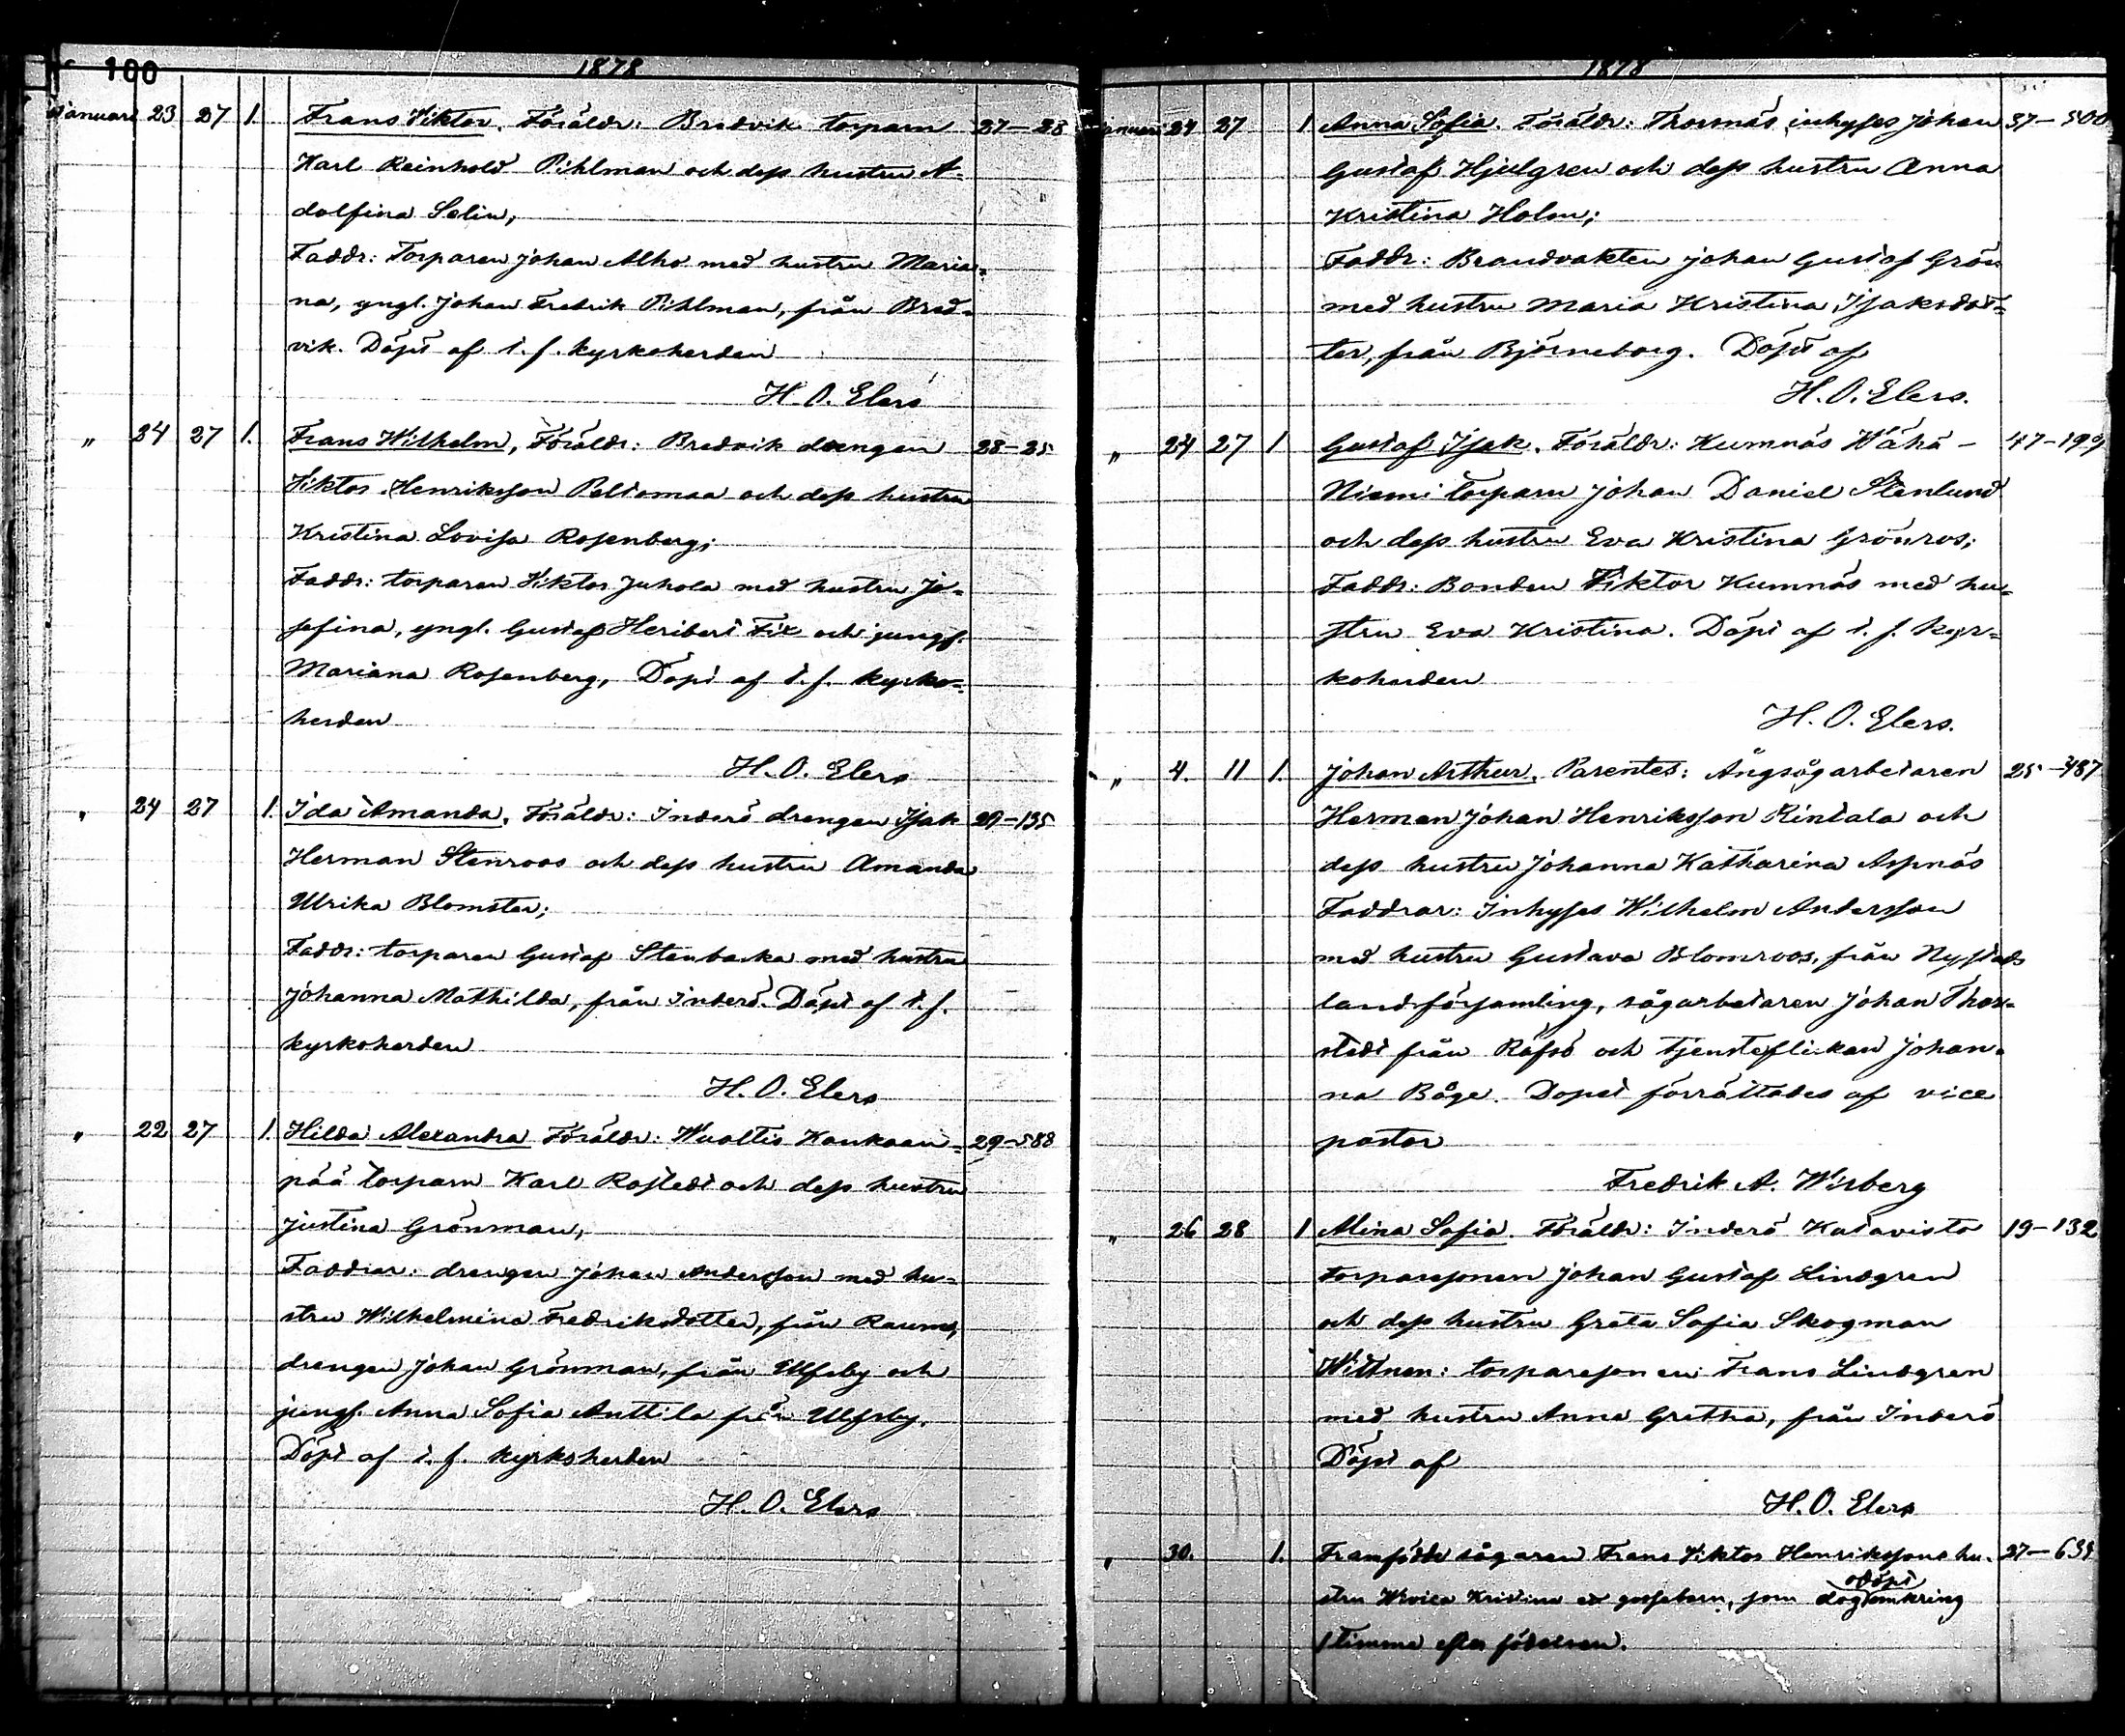 100
1878
Januari 23 27 1. Frans Viktor. Föräldr: Bredvik torparn 27-28
Karl Reinhold Pihlman och dess hustru A-
dolfina Selin,
Faddr: Torparen Johan Alho med hustru Maria-
na, yngl. Johan Fredrik Pihlman, från Bred-
vik. Döpt af t. f. kyrkoherden
H. O. Elers
" 24 27 1. Frans Wilhelm, Föräldr: Bredvik drengen 28-25
Viktor Henriksson Peltomaa och dess hustru
Kristina Lovisa Rosenberg;
Faddr: torparen Viktor Juhola med hustru Jo-
sefina, yngl. Gustaf Heribert Fix och jungf.
Mariana Rosenberg, Döpt af t. f. kyrko-
herden
H. O. Elers
" 24 27 1. Ida Amanda, Föräldr: Inderö drengen Isak 20-135
Herman Stenroos och dess hustru Amanda
Ulrika Blomster;
Faddr: torparen Gustaf Stenbacka med hustru
Johanna Mathilda, från Inderö. Döpt af t. f.
kyrkoherden
H. O. Elers
" 22 27 1. Hilda Alexandra Föräldr: Wuoltis Kankaan- 29-588
pää torparn Karl Rostedt och dess hustru
Justina Grönman,
Faddrar: drengen Johan Andersson med hu-
stru Wilhelmina Fredriksdotter, från Raumo,
drengen Johan Grönman, från Ulfsby och
jungf. Anna Sofia Anttila från Ulfsby.
Döpt af t. f. kyrkoherden
H. O. Elers
1878
Januari 24 27 1 Anna Sofia. Föräldr: Thorsnäs inhyses Johan 37-500
Gustaf Hjulgren och dess hustru Anna
Kristina Holm;
Faddr: Brandvakten Johan Gustaf Grön
med hustru Maria Kristina Isaksdot-
ter, från Björneborg. Döpt af
H. O. Elers.
" 24 27 1 Gustaf Isak. Föräldr: Kumnäs Wähä- 47-199
Niemi torparn Johan Daniel Stenlund
och dess hustru Eva Kristina Grönros;
Faddr: Bonden Viktor Kumnäs med hu-
stru Eva Kristina. Döpt af t. f. kyr-
koherden
H. O. Elers.
" 4. 11 1. Johan Arthur. Parentes: Ångsågarbetaren 25-487
Herman Johan Henriksson Rintala och
dess hustru Johanna Katharina Aspnäs
Faddrar: Inhyses Wilhelm Andersson
med hustru Gustava Blomroos, från Nystads
landsförsamling, sågarbetaren Johan Thor-
stedt från Räfsö och tjensteflickan Johan-
na Båge. Dopet förrättades af vice
pastor
Fredrik A. Wisberg
" 26 28 1 Mina Sofia. Föräldr: Inderö Katavisto 19-132
torparesonen Johan Gustaf Lindgren
och dess hustru Greta Sofia Skogman
Wittnen: torparesonen Frans Lindgren
med hustru Anna Gretha, från Inderö
Döpt af
H. O. Elers
" 30. 1. Framfödde sågaren Frans Viktor Henrikssons hu-
stru Kristina ett gossebarn, som dog odöpt omkring
1 timme efter födelsen.